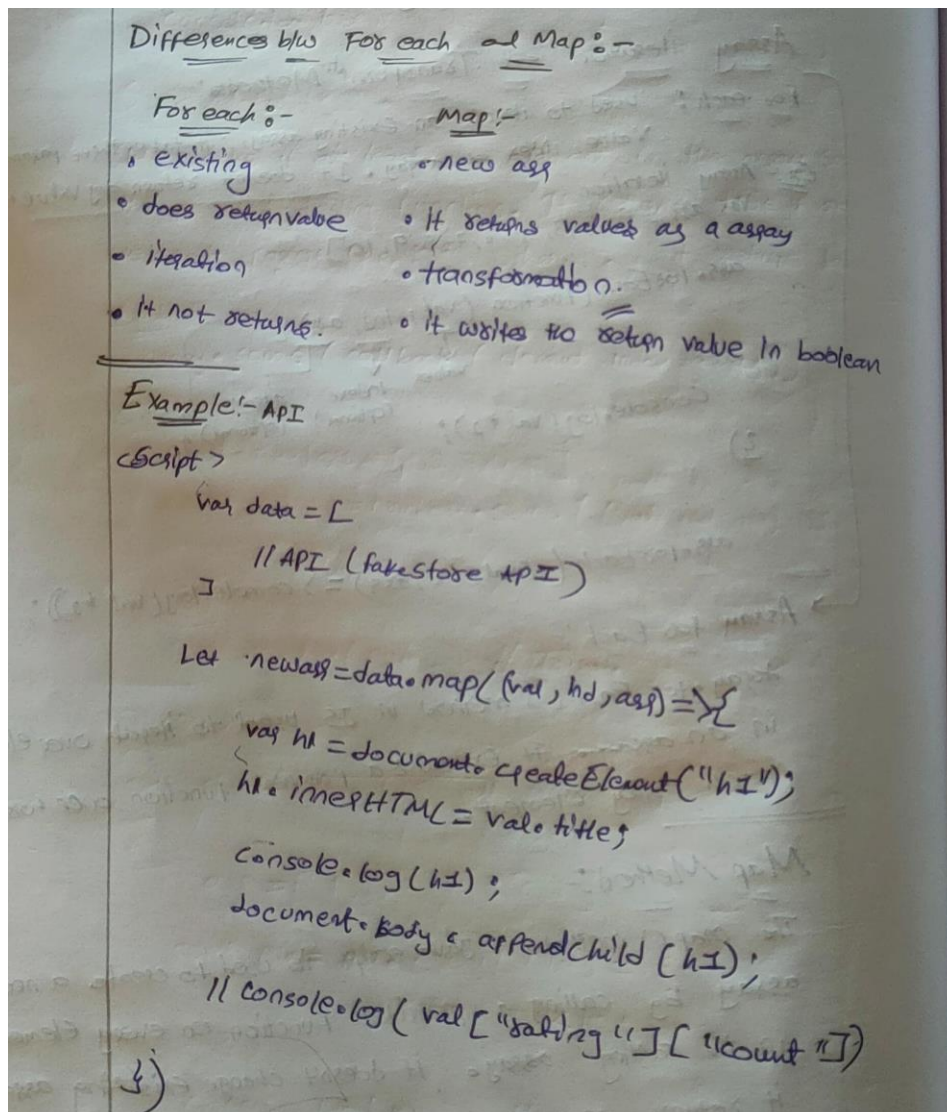 Differences b/w For each and Map:-
For each:-
Map:-
• existing
• new arr
• does return value
• it returns values as a array
• iteration
• transformation.
• it not returns.
• it writes to return value in boolean
Example:- API
<Script>
var data = [
// API (fakestore API)
]
Let newarr = data.map( (val, ind, arr) => {
var h1 = document.createElement("h1");
h1.innerHTML = val.title;
console.log(h1);
document.body.appendChild(h1);
// console.log( val["rating"]["count"])
})